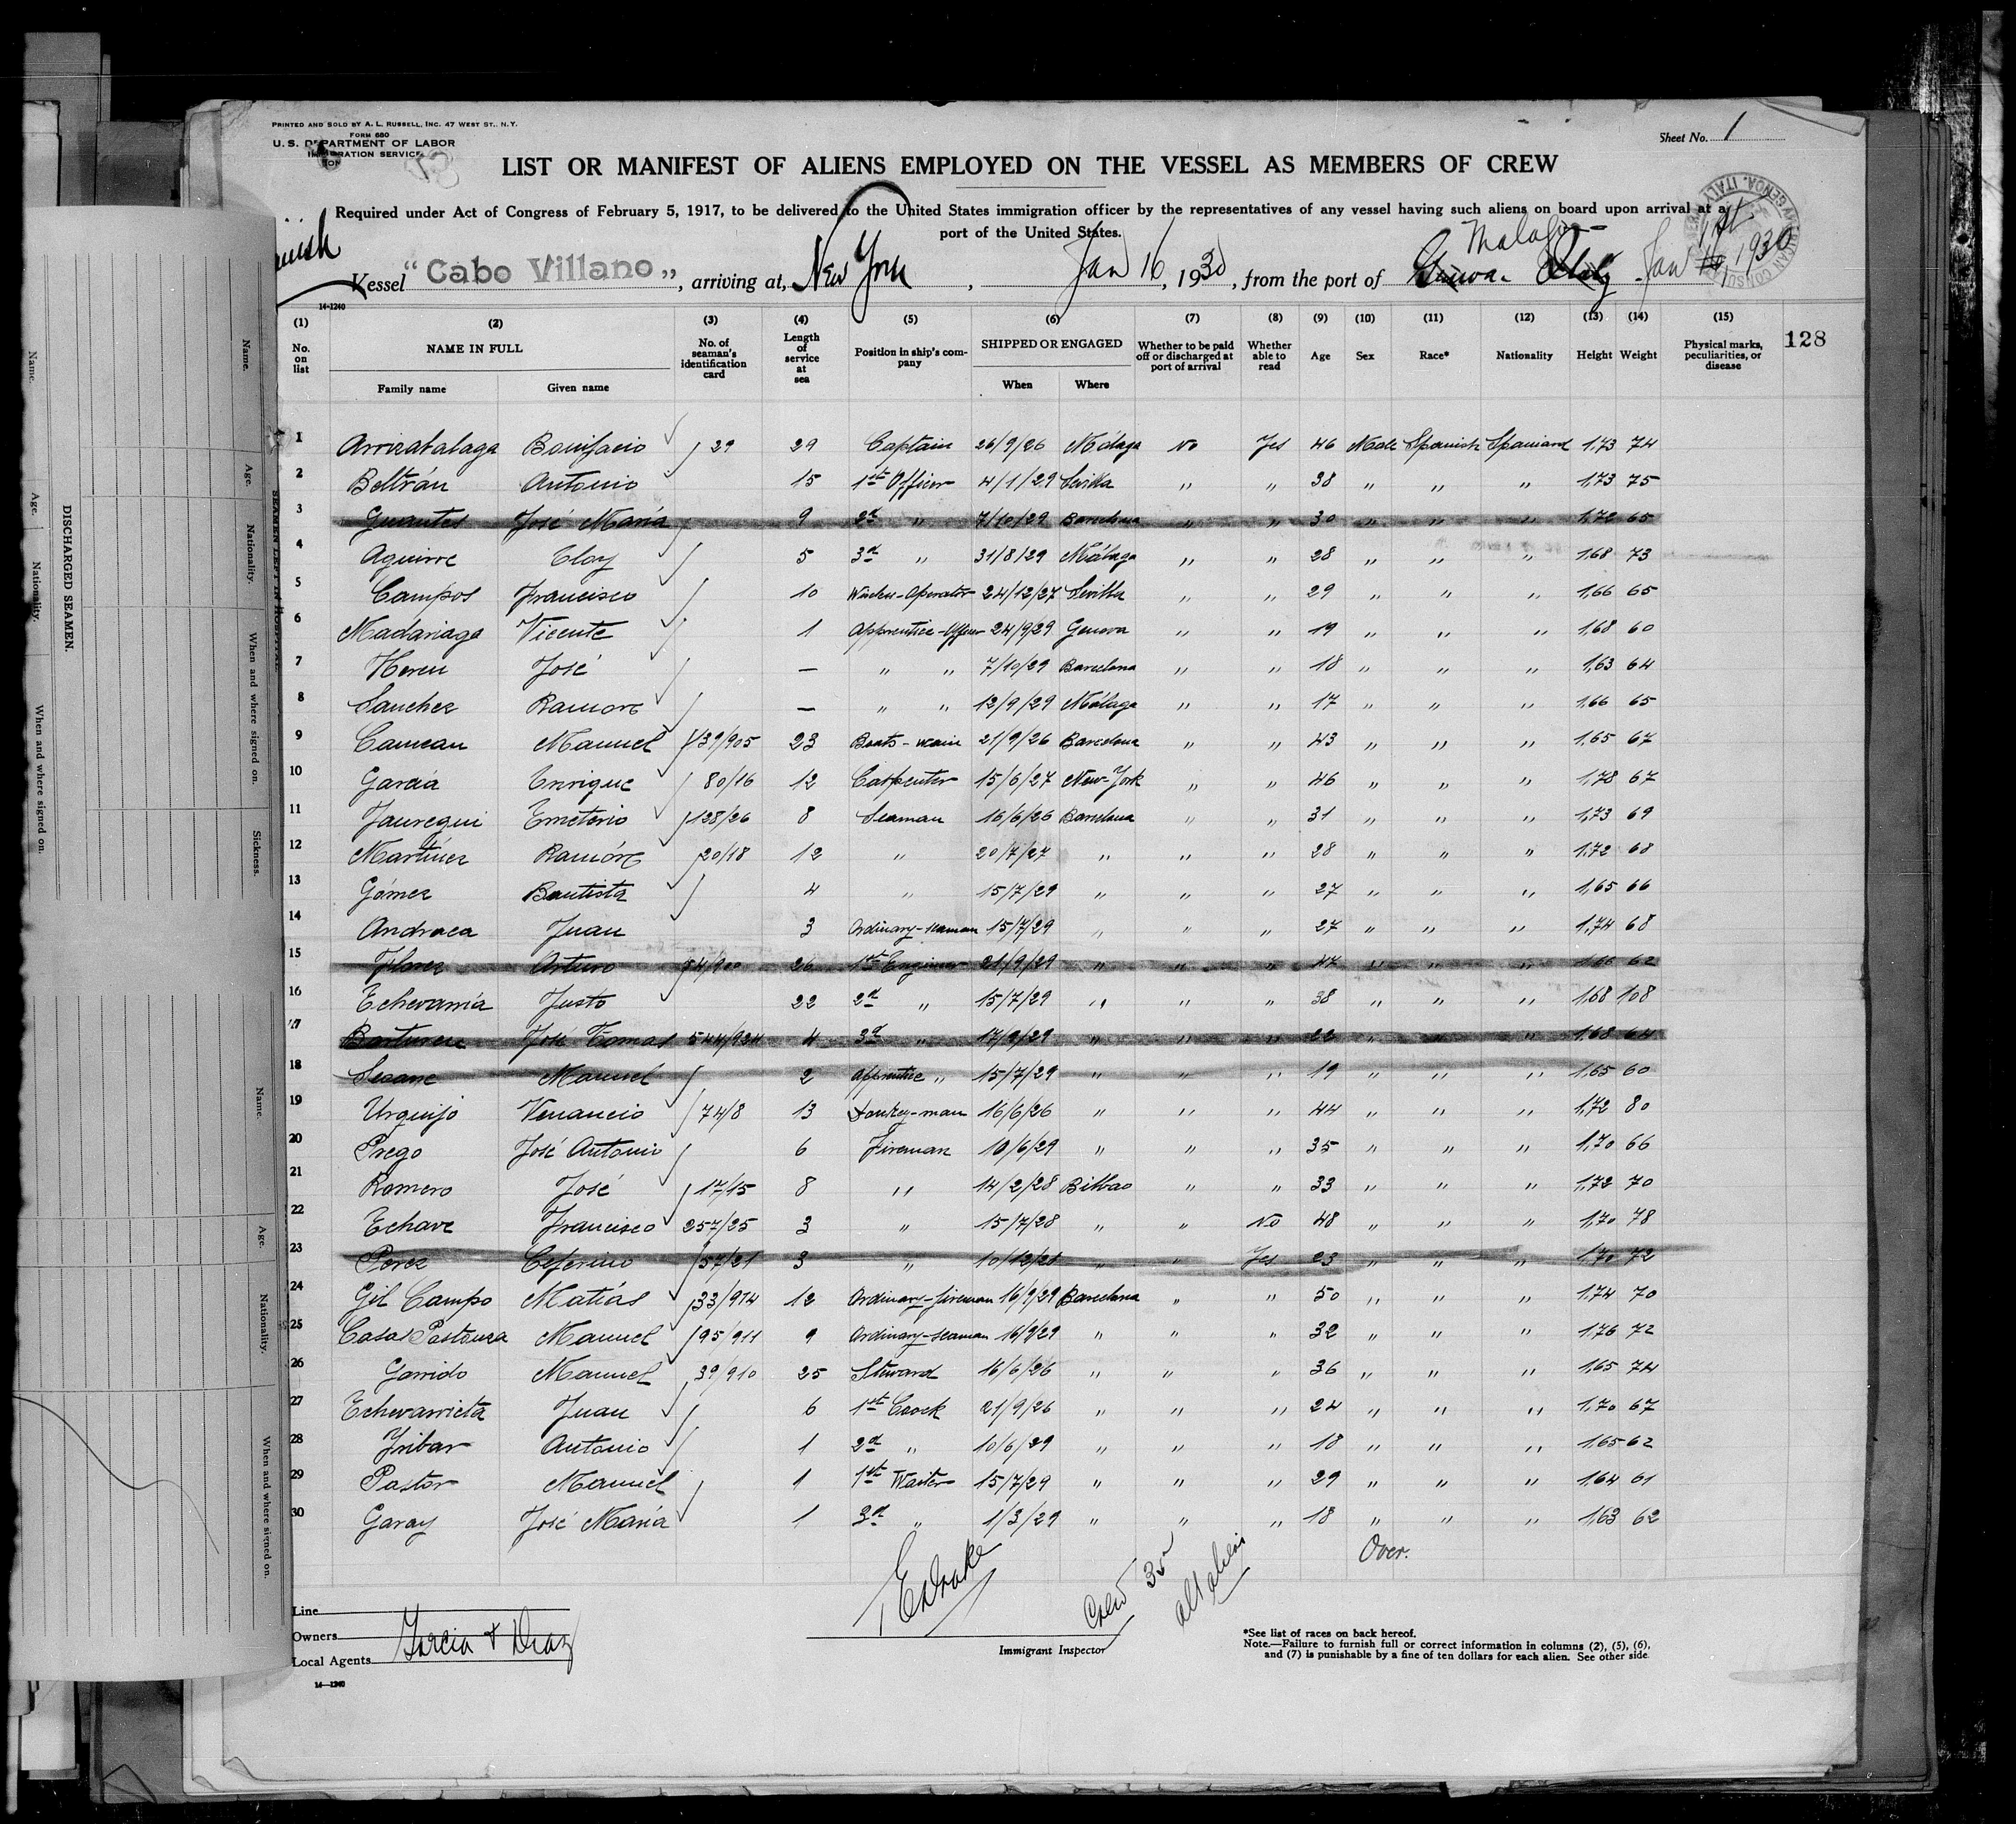 PRINTED AND SOLD BY A. L. RUSSELL, INC. 47 WEST ST., N.Y.
FORM 680
U. S. DEPARTMENT OF LABOR
IMMIGRATION SERVICE
Sheet No. 1
LIST OR MANIFEST OF ALIENS EMPLOYED ON THE VESSEL AS MEMBERS OF CREW
Required under Act of Congress of February 5, 1917, to be delivered to the United States immigration officer by the representatives of any vessel having such aliens on board upon arrival at a
port of the United States.
Vessel "Cabo Villano", arriving at, New York, Jan 16, 1930, from the port of Malaga Genova - Italy Jan 1st 1930
14-1240
(1) (2) (3) (4) (5) (6) (7) (8) (9) (10) (11) (12) (13) (14) (15)
No. on list NAME IN FULL Family name Given name No. of seaman's identification card Length of service at sea Position in ship's company SHIPPED OR ENGAGED When Where Whether to be paid off or discharged at port of arrival Whether able to read Age Sex Race* Nationality Height Weight Physical marks, peculiarities, or disease 128
1 Arrizabalaga Bonifacio 29 29 Captain 26/9/26 Málaga No Yes 46 Male Spanish Spaniard 1,73 74
2 Beltrán Antonio 15 1st Officer 4/1/29 Sevilla " " 38 " " " 1,73 75
3 Guantes José María 9 2d " 7/10/29 Barcelona " " 30 " " " 1,72 65
4 Aguirre Eloy 5 3d " 31/8/29 Málaga " " 28 " " " 1,68 73
5 Campos Francisco 10 Wireless-Operator 24/12/27 Sevilla " " 29 " " " 1,66 65
6 Madariaga Vicente 1 Apprentice-Officer 24/9/29 Genova " " 19 " " " 1,68 60
7 Hereu José — " " 7/10/29 Barcelona " " 18 " " " 1,63 64
8 Sanchez Ramón — " " 12/9/29 Málaga " " 17 " " " 1,66 65
9 Camean Manuel 139/905 23 Boats-wain 21/9/26 Barcelona " " 43 " " " 1,65 67
10 García Enrique 80/16 12 Carpenter 15/6/27 New-York " " 46 " " " 1,78 67
11 Jauregui Emeterio 128/26 8 Seaman 16/6/26 Barcelona " " 31 " " " 1,73 69
12 Martínez Ramón 20/18 12 " 20/7/27 " " " 28 " " " 1,72 68
13 Gómez Bautista 4 " 15/7/29 " " " 27 " " " 1,65 66
14 Andraca Juan 3 Ordinary-seaman 15/7/29 " " " 27 " " " 1,74 68
15 Florez Arturo 54/900 26 1st Engineer 21/9/29 " " " 47 " " " 1,66 62
16 Echevarría Justo 22 2d " 15/7/29 " " " 38 " " " 1,68 108
17 Barturen José Tomas 544/924 4 3d " 17/9/29 " " " 22 " " " 1,68 64
18 Seoane Manuel 2 Apprentice " 15/7/29 " " " 19 " " " 1,65 60
19 Urquijo Venancio 74/8 13 Donkey-man 16/6/26 " " " 44 " " " 1,72 80
20 Prego José Antonio 6 Fireman 10/6/29 " " " 35 " " " 1,70 66
21 Romero José 17/15 8 " 14/2/28 Bilbao " " 33 " " " 1,72 70
22 Echave Francisco 257/25 3 " 15/7/28 " " No 48 " " " 1,70 78
23 Perez Ceferino 57/21 3 " 10/12/28 " " Yes 23 " " " 1,70 72
24 Gil Campo Matías 33/914 12 Ordinary-fireman 16/9/29 Barcelona " " 50 " " " 1,74 70
25 Casas Pastoura Manuel 95/911 9 Ordinary-seaman 16/9/29 " " " 32 " " " 1,76 72
26 Garrido Manuel 39/910 25 Steward 16/6/26 " " " 36 " " " 1,65 74
27 Echevarrieta Juan 6 1st Coock 21/9/26 " " " 24 " " " 1,70 67
28 Yribar Antonio 1 2d " 10/6/29 " " " 18 " " " 1,65 62
29 Pastor Manuel 1 1st Waiter 15/7/29 " " " 29 " " " 1,64 61
30 Garay José María 1 2d " 1/3/29 " " " 18 " " " 1,63 62
Over.
Crew 35
all aliens
Line
Owners
Local Agents Garcia & Diaz
Immigrant Inspector
*See list of races on back hereof.
Note.—Failure to furnish full or correct information in columns (2), (5), (6),
and (7) is punishable by a fine of ten dollars for each alien. See other side.
14—1240
DISCHARGED SEAMEN.
SEAMEN LEFT IN HOSPITAL
Name. Age. Nationality. When and where signed on.
Name. Age. Nationality. When and where signed on. Sickness.
Name. Age. Nationality. When and where signed on.